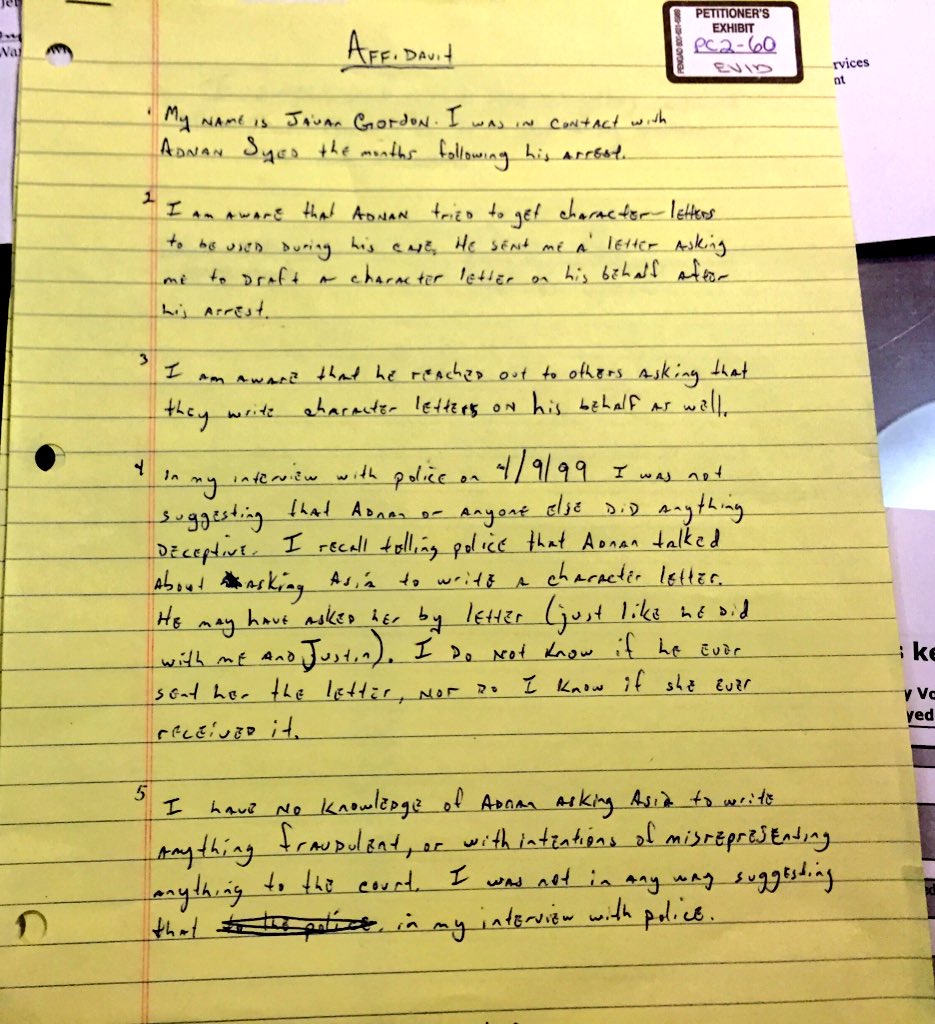 AFFIDAVIT
PETITIONER'S
EXHIBIT
PC2-60
EVID
PENGAD 800-631-6989
1 My name is Ja'uan Gordon. I was in contact with
Adnan Syed the months following his arrest.
2 I am aware that Adnan tried to get character letters
to be used during his case. He sent me a letter asking
me to draft a character letter on his behalf after
his arrest.
3 I am aware that he reached out to others asking that
they write character letters on his behalf as well.
4 In my interview with police on 4/9/99 I was not
suggesting that Adnan or anyone else did anything
deceptive. I recall telling police that Adnan talked
about asking Asia to write a character letter.
He may have asked her by letter (just like he did
with me and Justin). I do not know if he ever
sent her the letter, nor do I know if she ever
received it.
5 I have no knowledge of Adnan asking Asia to write
anything fraudulent, or with intentions of misrepresenting
anything to the court. I was not in any way suggesting
that to the police, in my interview with police.
rvices
nt
ke
y Vo
yed